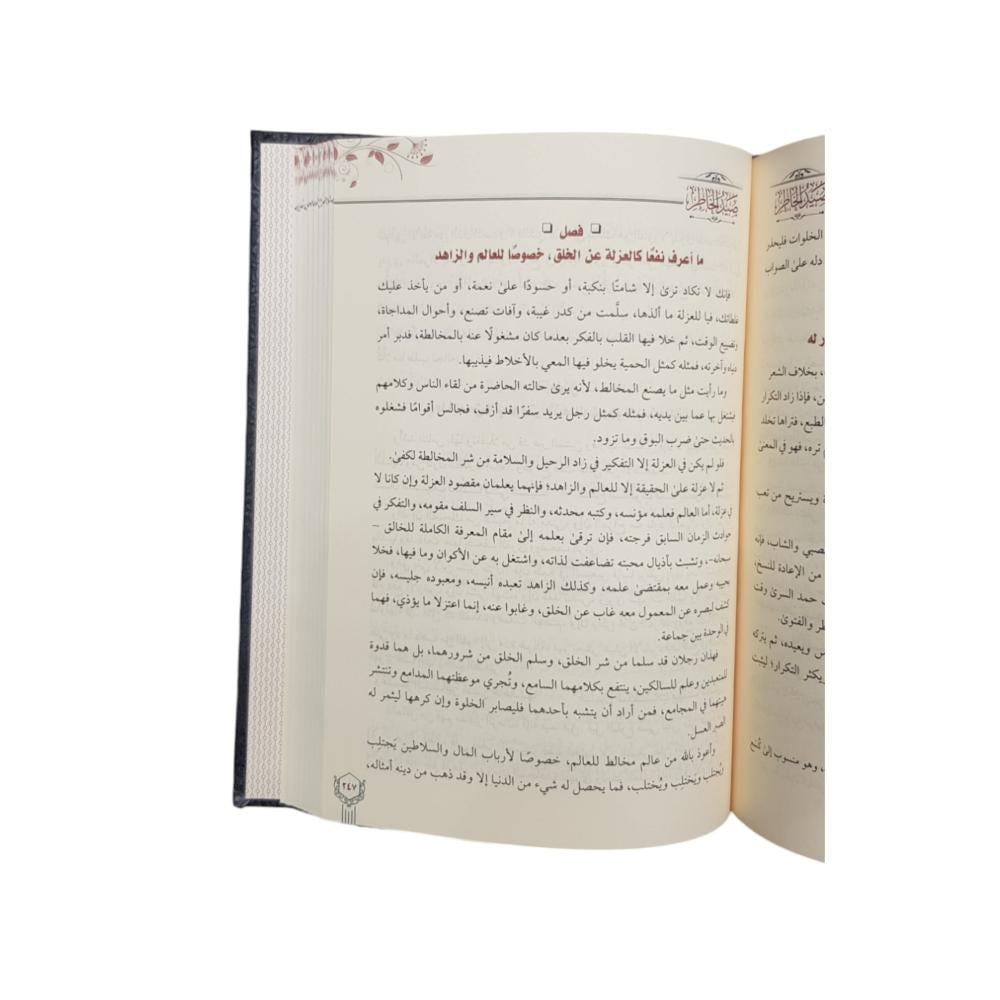 صيد الخاطر
فصل
ما أعرف نفعًا كالعزلة عن الخلق، خصوصًا للعالم والزاهد
فإنك لا تكاد ترىٰ إلا شامتًا بنكبة، أو حسودًا علىٰ نعمة، أو من يأخذ عليك
غلطاتك، فيا للعزلة ما ألذها، سلَّمت من كدر غيبة، وآفات تصنع، وأحوال المداجاة،
وتضييع الوقت، ثم خلا فيها القلب بالفكر بعدما كان مشغولًا عنه بالمخالطة، فدبر أمر
دنياه وآخرته، فمثله كمثل الحمية يخلو فيها المعي بالأخلاط فيذيبها.
وما رأيت مثل ما يصنع المخالط، لأنه يرىٰ حالته الحاضرة من لقاء الناس وكلامهم
فيشتغل بها عما بين يديه، فمثله كمثل رجل يريد سفرًا قد أزف، فجالس أقوامًا فشغلوه
بالحديث حتىٰ ضرب البوق وما تزود.
فلو لم يكن في العزلة إلا التفكير في زاد الرحيل والسلامة من شر المخالطة لكفىٰ.
ثم لا عزلة علىٰ الحقيقة إلا للعالم والزاهد؛ فإنهما يعلمان مقصود العزلة وإن كانا لا
في عزلة، أما العالم فعلمه مؤنسه، وكتبه محدثه، والنظر في سير السلف مقومه، والتفكر في
حوادث الزمان السابق فرجته، فإن ترقىٰ بعلمه إلىٰ مقام المعرفة الكاملة للخالق –
سبحانه-، وتشبث بأذيال محبته تضاعفت لذاته، واشتغل به عن الأكوان وما فيها، فخلا
بحبيبه وعمل معه بمقتضىٰ علمه، وكذلك الزاهد تعبده أنيسه، ومعبوده جليسه، فإن
كشف لبصره عن المعمول معه غاب عن الخلق، وغابوا عنه، إنما اعتزلا ما يؤذي، فهما
في الوحدة بين جماعة.
فهذان رجلان قد سلما من شر الخلق، وسلم الخلق من شرورهما، بل هما قدوة
للمتعبدين وعلم للسالكين، ينتفع بكلامهما السامع، وتُجري موعظتهما المدامع وتنتشر
هيبتهما في المجامع، فمن أراد أن يتشبه بأحدهما فليصابر الخلوة وإن كرهها ليثمر له
الصبر العسل.
وأعوذ بالله من عالم مخالط للعالم، خصوصًا لأرباب المال والسلاطين يَجتلِب
ويُجتلب ويَختلِب ويُختلب، فما يحصل له شيء من الدنيا إلا وقد ذهب من دينه أمثاله،
٢٤٧
صيد الخاطر
الخلوات فليحذر
دله علىٰ الصواب
ر له
، بخلاف الشعر
ن، فإذا زاد التكرار
لطبع، فتراها تخلد
تره، فهو في المعنىٰ
ة ويستريح من تعب
صبي والشاب، فإنه
من الإعادة للنسخ،
حمد السرىٰ وقت
ظر والفتوىٰ.
س ويعيده، ثم يتركه
يكثر التكرار؛ ليثبت
، وهو منسوب إلىٰ